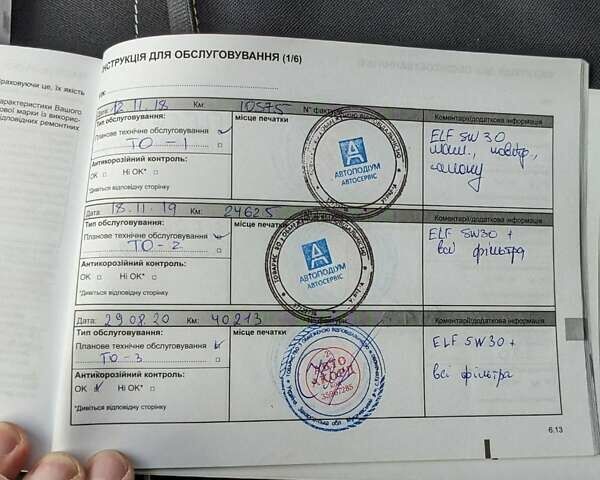 раховуючи це, їх якість
арактеристики Вашого
ої марки із викорис-
дповідних ремонтних
ІНСТРУКЦІЯ ДЛЯ ОБСЛУГОВУВАННЯ (1/6)
Дата: 12.11.18 Км: 10575 N° фактури
Коментарі/додаткова інформація
Тип обслуговування:
Планове технічне обслуговування
ТО - 1
Антикорозійний контроль:
ОК □ Ні ОК* □
*Дивіться відповідну сторінку
місце печатки
А
АВТОПОДІУМ
АВТОСЕРВІС
ELF 5W30
Дата: 18.11.19 Км: 24625
Коментарі/додаткова інформація
Тип обслуговування:
Планове технічне обслуговування
ТО - 2
Антикорозійний контроль:
ОК □ Ні ОК* □
*Дивіться відповідну сторінку
місце печатки
А
АВТОПОДІУМ
АВТОСЕРВІС
ELF 5W30 +
всі фільтра
Дата: 29.08.20 Км: 40213
Коментарі/додаткова інформація
Тип обслуговування:
Планове технічне обслуговування
ТО - 3
Антикорозійний контроль:
ОК Ні ОК* □
*Дивіться відповідну сторінку
місце печатки
ELF 5W30 +
всі фільтра
6.13